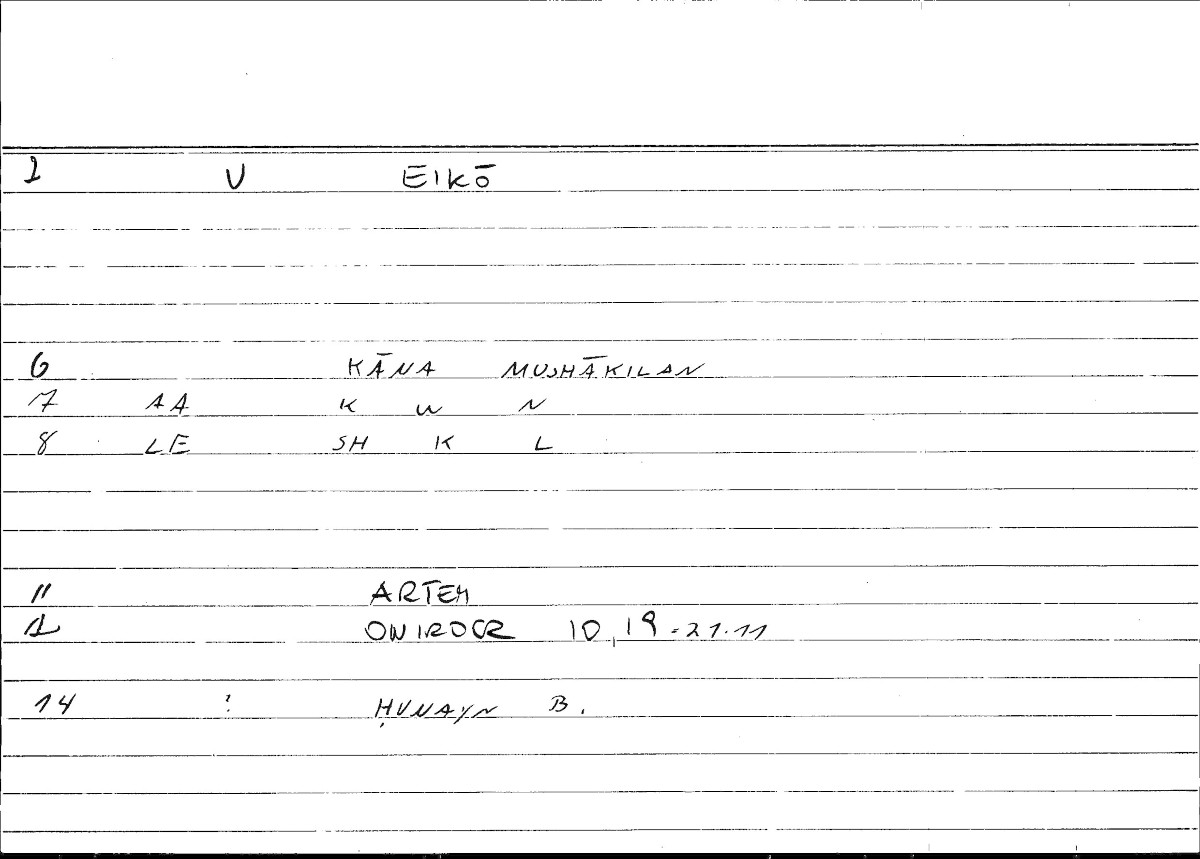 1 V EIKŌ
6 KĀNA MUSHĀKILAN
7 AA K W N
8 LE SH K L
11 ARTEM
1 ONIROCR 10,19-21.11
14 ? ḤUNAYN B.